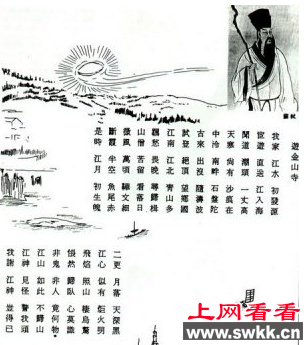 蘇軾
遊金山寺
我家江水初發源
宦遊直送江入海
聞道潮頭一丈高
天寒尚有沙痕在
中泠南畔石盤陀
古來出沒隨濤波
試登絕頂望鄉國
江南江北青山多
羈愁畏晚尋歸楫
山僧苦留看落日
微風萬頃鞾文細
斷霞半空魚尾赤
是時江月初生魄
二更月落天深黑
江心似有炬火明
飛焰照山棲烏驚
悵然歸臥心莫識
非鬼非人竟何物
江山如此不歸山
江神見怪警我頑
我謝江神豈得已
上网看看
www.swkk.cn